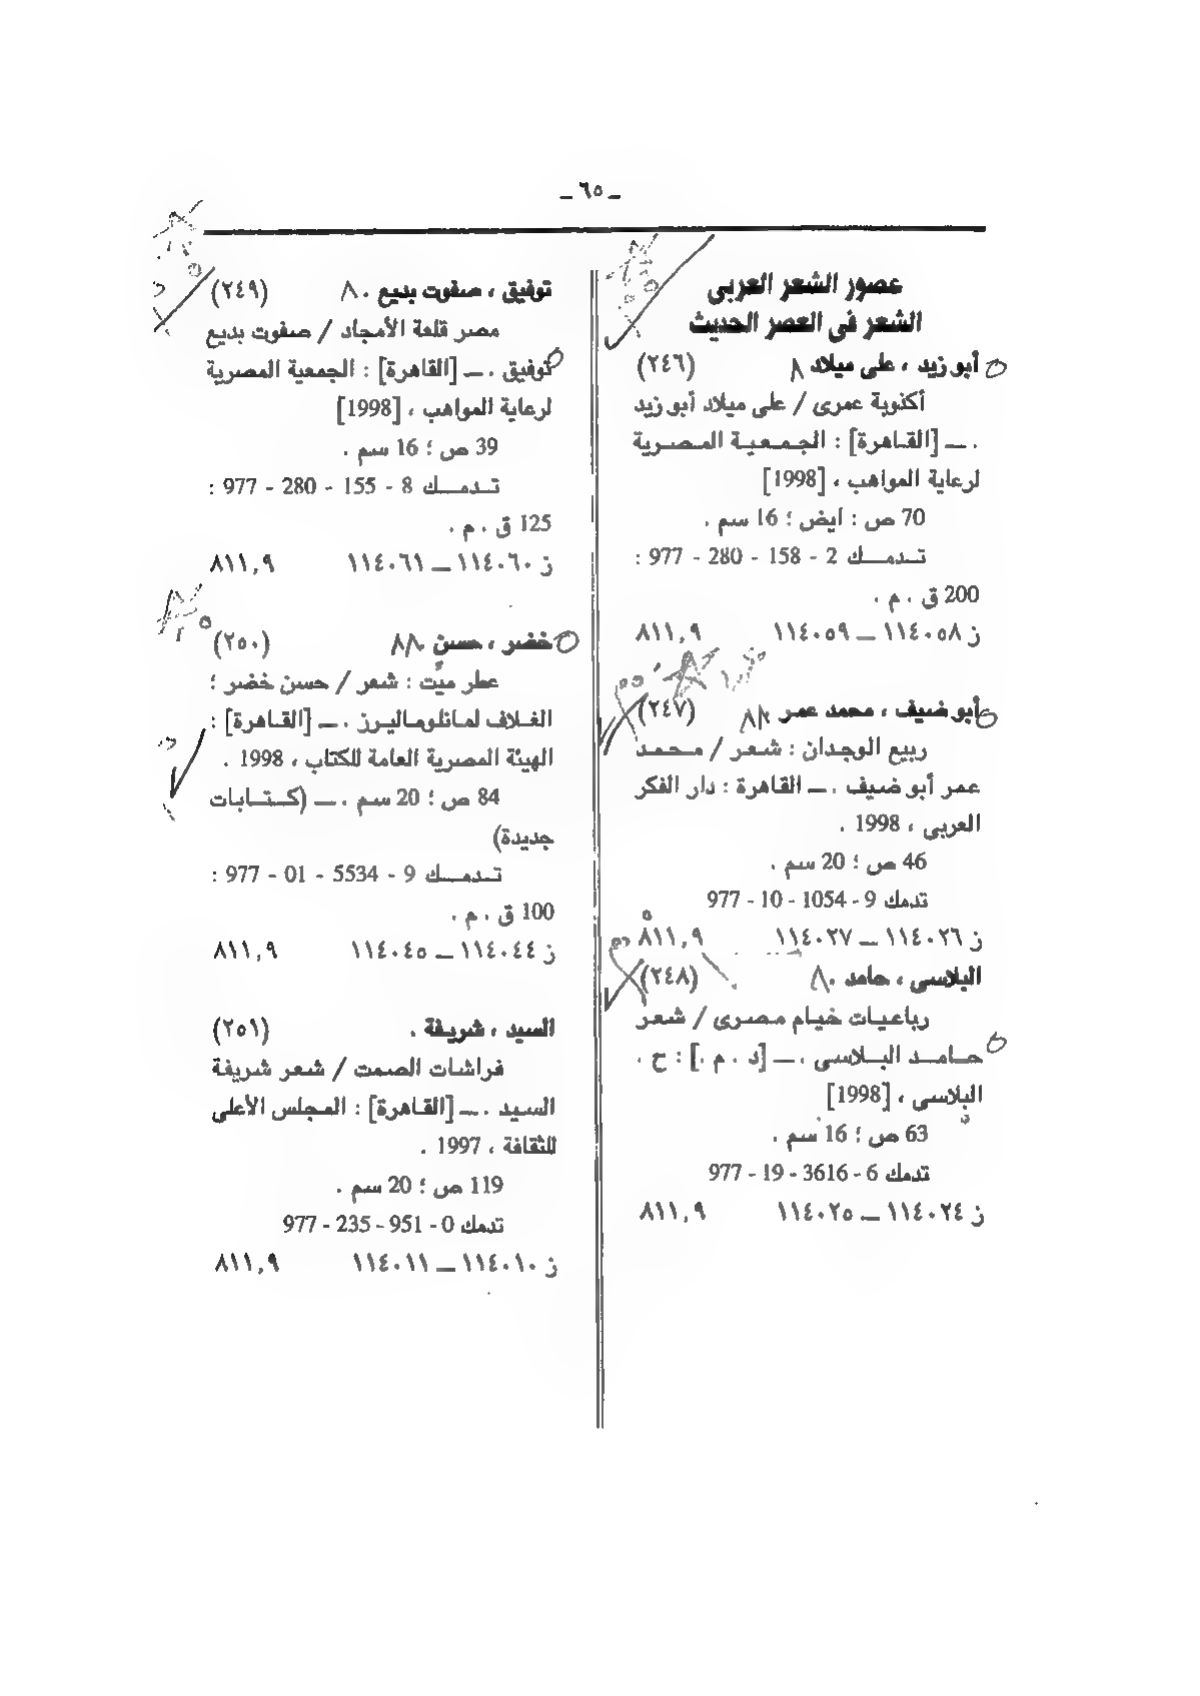 ـ ٦٥ ـ
عصور الشعر العربى
الشعر فى العصر الحديث
أبو زيد ، على ميلاد (٢٤٦)
أكذوبة عمرى / على ميلاد أبو زيد
. ـ [القاهرة] : الجمعية المصرية
لرعاية المواهب ، [1998]
70 ص : ايض ؛ 16 سم .
تدمك 2 - 158 - 280 - 977 :
200 ق . م .
ز ١١٤٠٥٨ ــ ١١٤٠٥٩ ٨١١,٩
أبو ضيف ، محمد عمر (٢٤٧)
ربيع الوجدان : شعر / محمد
عمر أبو ضيف . ـ القاهرة : دار الفكر
العربى ، 1998 .
46 ص ؛ 20 سم .
تدمك 9 - 1054 - 10 - 977
ز ١١٤٠٢٦ ــ ١١٤٠٢٧ ٨١١,٩
البلاسى ، حامد (٢٤٨)
رباعيات خيام مصرى / شعر
حامد البلاسى . ـ [د . م .] : ح .
البلاسى ، [1998]
63 ص ؛ 16 سم .
تدمك 6 - 3616 - 19 - 977
ز ١١٤٠٢٤ ــ ١١٤٠٢٥ ٨١١,٩
توفيق ، صفوت بديع . (٢٤٩)
مصر قلعة الأمجاد / صفوت بديع
توفيق . ـ [القاهرة] : الجمعية المصرية
لرعاية المواهب ، [1998]
39 ص ؛ 16 سم .
تدمك 8 - 155 - 280 - 977 :
125 ق . م .
ز ١١٤٠٦٠ ــ ١١٤٠٦١ ٨١١,٩
خضر ، حسن (٢٥٠)
عطر ميّت : شعر / حسن خضر ؛
الغلاف لمانلوماليرز . ـ [القاهرة] :
الهيئة المصرية العامة للكتاب ، 1998 .
84 ص ؛ 20 سم . ـ (كتابات
جديدة)
تدمك 9 - 5534 - 01 - 977 :
100 ق . م .
ز ١١٤٠٤٤ ــ ١١٤٠٤٥ ٨١١,٩
السيد ، شريفة . (٢٥١)
فراشات الصمت / شعر شريفة
السيد . ـ [القاهرة] : المجلس الأعلى
للثقافة ، 1997 .
119 ص ؛ 20 سم .
تدمك 0 - 951 - 235 - 977
ز ١١٤٠١٠ ــ ١١٤٠١١ ٨١١,٩